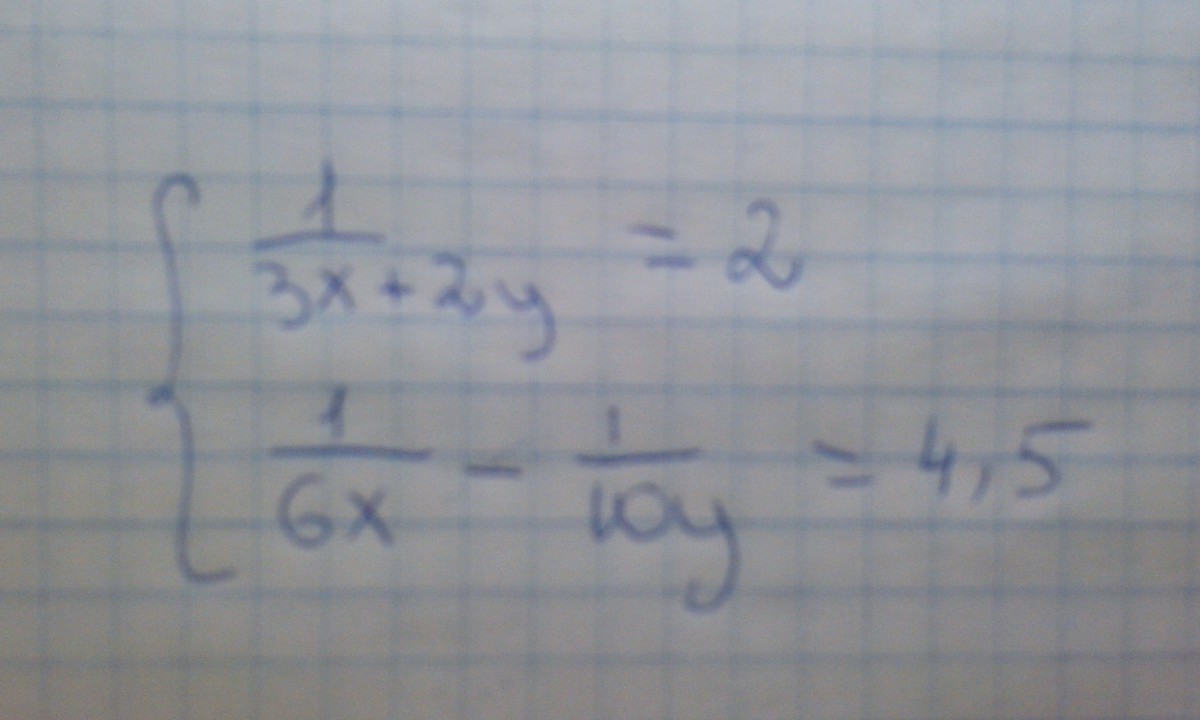 1/(3x+2y) = 2
1/(6x) - 1/(10y) = 4,5